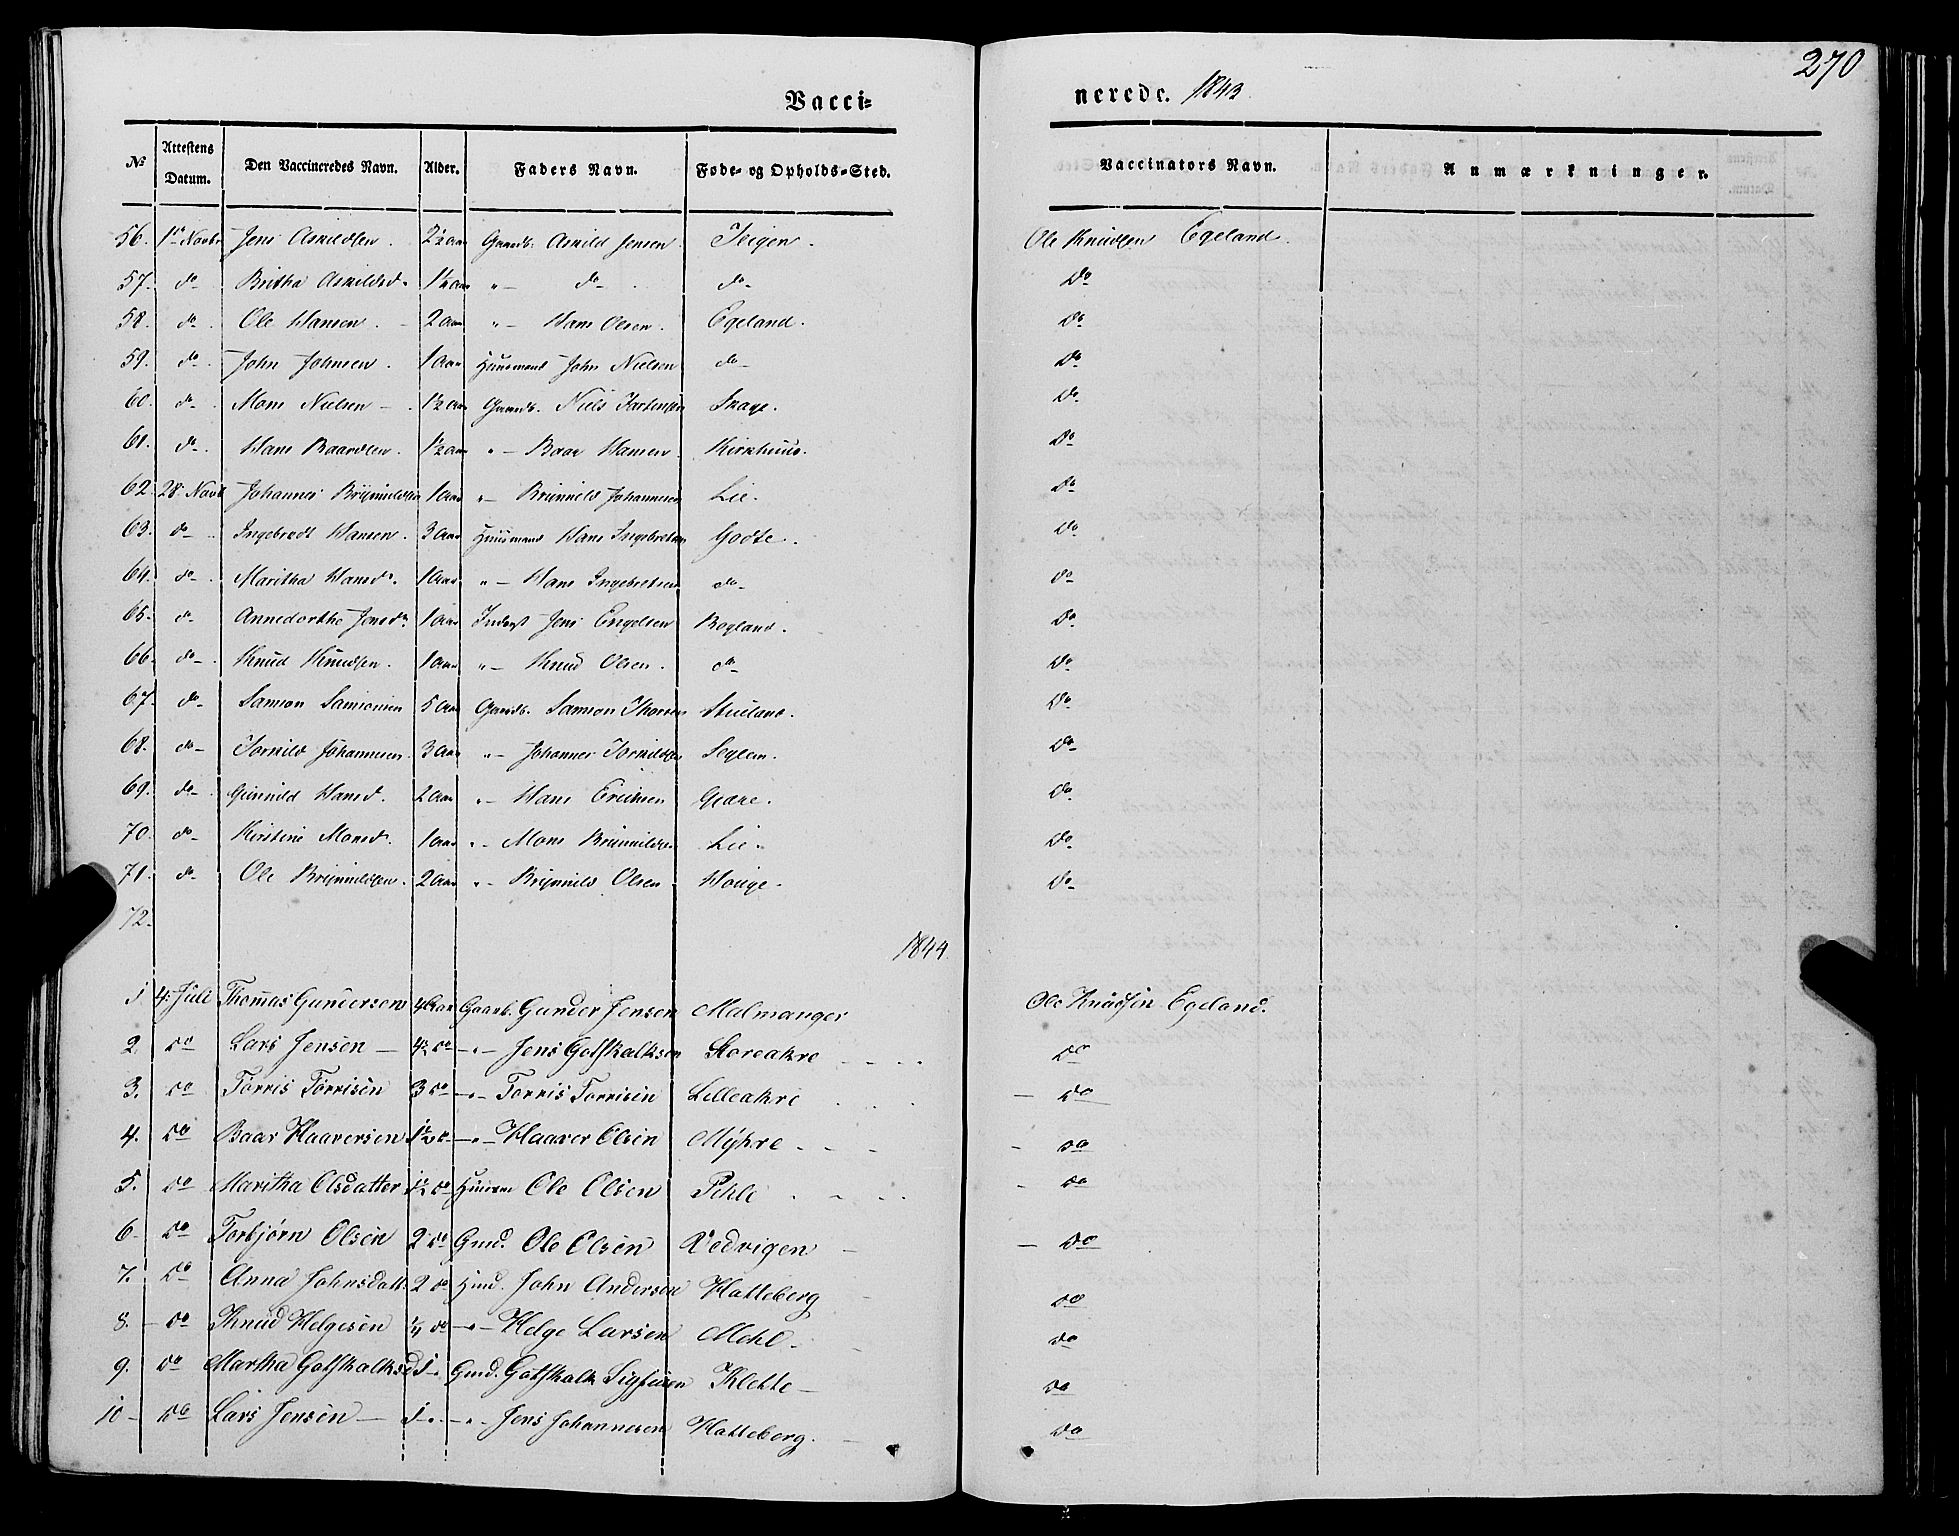 270
Vacci- nerede. 1843.
No Attestens Datum. Den Vaccineredes Navn. Alder. Faders Navn. Føde- og Opholds-Sted. Vaccinators Navn. Anmærkninger.
56. 1st Novbr Jens Asmildsen. 2½ aar Gaardb. Asmild Jensen Teigen. Ole Knudsen Egeland.
57. do Britha Asmildsd. 1½ aar " - do do Do
58. do Ole Hansen. 2 aar " - Hans Olsen. Egeland. Do
59. do John Johnsen. 1 aar Huusmand John Nielsen do Do
60. do Mons Nielsen 1½ aar Gaardb. Niels Do
61. do Hans Baardsen. 1½ aar " - Baar Hansen Kirkhuus. Do
62. 28 Novb Johannes Brynnildsen 1 aar " - Brunnild Johannesen Lie. Do
63. do Ingebredt Hansen. 3 aar Huusmand Hans Ingebretsen Godte. Do
64. do Maritha Hansd. 1 aar " - Hans Ingebretsen do Do
65. do Annedorthe Jensd. 1 aar Inderst Jens Engelsen Bogland. Do
66. do Knud Knudsen. 1 aar " - Knud Olsen. do Do
67. do Samson Samsonsen 5 aar Gaardb. Samson Thorsen Do
68. do Tormild Johannesen 3 aar " - Johannes Tormildsen Seglem. Do
69. do Gunnild Hansd. 2 aar " - Hans Erichsen Gjære. Do
70. do Kirstine Monsd. 1 aar " - Mons Brunnildsen Lie. Do
71. do Ole Brynnildsen. 2 aar " - Brynnild Olsen Houge. Do
72.
1844.
1 4. Juli Thomas Gundersen 4 Aar Gaardb. Gunder Jensen Malmanger Ole Knudsen Egeland.
2 do Lars Jensen 4½ do " - Jens Gotskalksen Storeakre do
3. do Torris Torrisen 3 do " - Torris Torrisen Lilleakre do
4. do Baar Haaversen 1½ do " - Haaver Olsen Mÿkre do
5. do Maritha Olsdatter 1½ do Huusm Ole Olsen Pihle do
6 do Torbjørn Olsen 2 do Gmd. Ole Olsen Vedvigen do
7. do Anna Johnsdatt 2 do Hmd. John Andersen Hatteberg do
8. do Knud Helgesen ¼ do " - Helge Larsen Mehl do
9. do Martha Gotskalksd 1 " Gmd. Gotskalk Sigfusen Klette do
10 do Lars Jensen 1 " " - Jens Johannesen Hatteberg. do